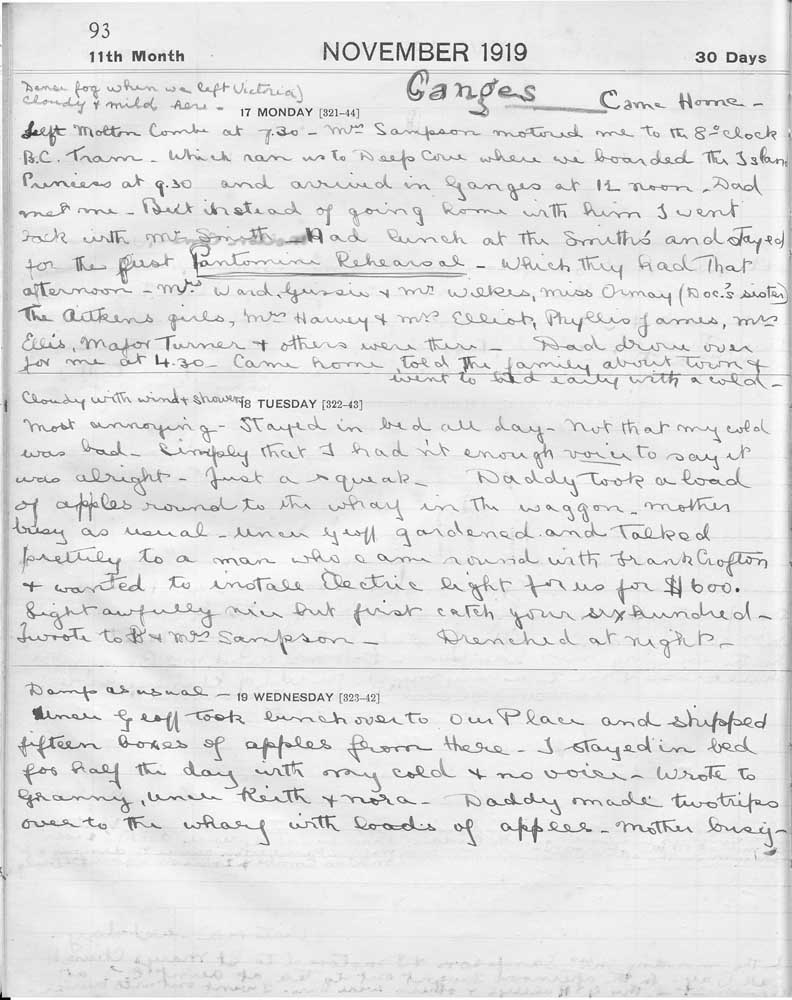 93
11th Month NOVEMBER 1919 30 Days
Dense fog when we left Victoria
Cloudy & mild here - Ganges Came Home -
17 MONDAY [321-44]
Left Molton Combe at 7.30 - Mrs Sampson motored me to the 8 o'clock
B.C. Tram - Which ran us to Deep Cove where we boarded the Island
Princess at 9.30 and arrived in Ganges at 12 noon - Dad
met me - But instead of going home with him I went
back with Mr Smith - Had lunch at the Smith's and stayed
for the first Pantomime Rehearsal - Which they had that
afternoon - Mrs Ward, Gussie & Mr Wilkes, Miss Ormay (Doc.'s sister)
The Aitkens girls, Mrs Harvey & Mrs Elliot, Phyllis James, Mrs
Ellis, Major Turner & others were there - Dad drove over
for me at 4.30 - Came home, told the family about town &
went to bed early with a cold -
Cloudy with wind & showers 18 TUESDAY [322-43]
Most annoying - Stayed in bed all day - Not that my cold
was bad - Simply that I hadn't enough voice to say it
was alright - Just a squeak - Daddy took a load
of apples round to the wharf in the waggon - Mother
busy as usual - Uncle Geoff gardened and talked
prettily to a man who came round with Frank Crofton
& wanted to install Electric light for us for $600.
Light awfully nice but first catch your six hundred -
I wrote to B & Mrs Sampson - Drenched at night -
Damp as usual - 19 WEDNESDAY [323-42]
Uncle Geoff took lunch over to Our Place and shipped
fifteen boxes of apples from there - I stayed in bed
for half the day with my cold & no voice - Wrote to
Granny, Uncle Keith & Nora - Daddy made two trips
over to the wharf with loads of apples - Mother busy -